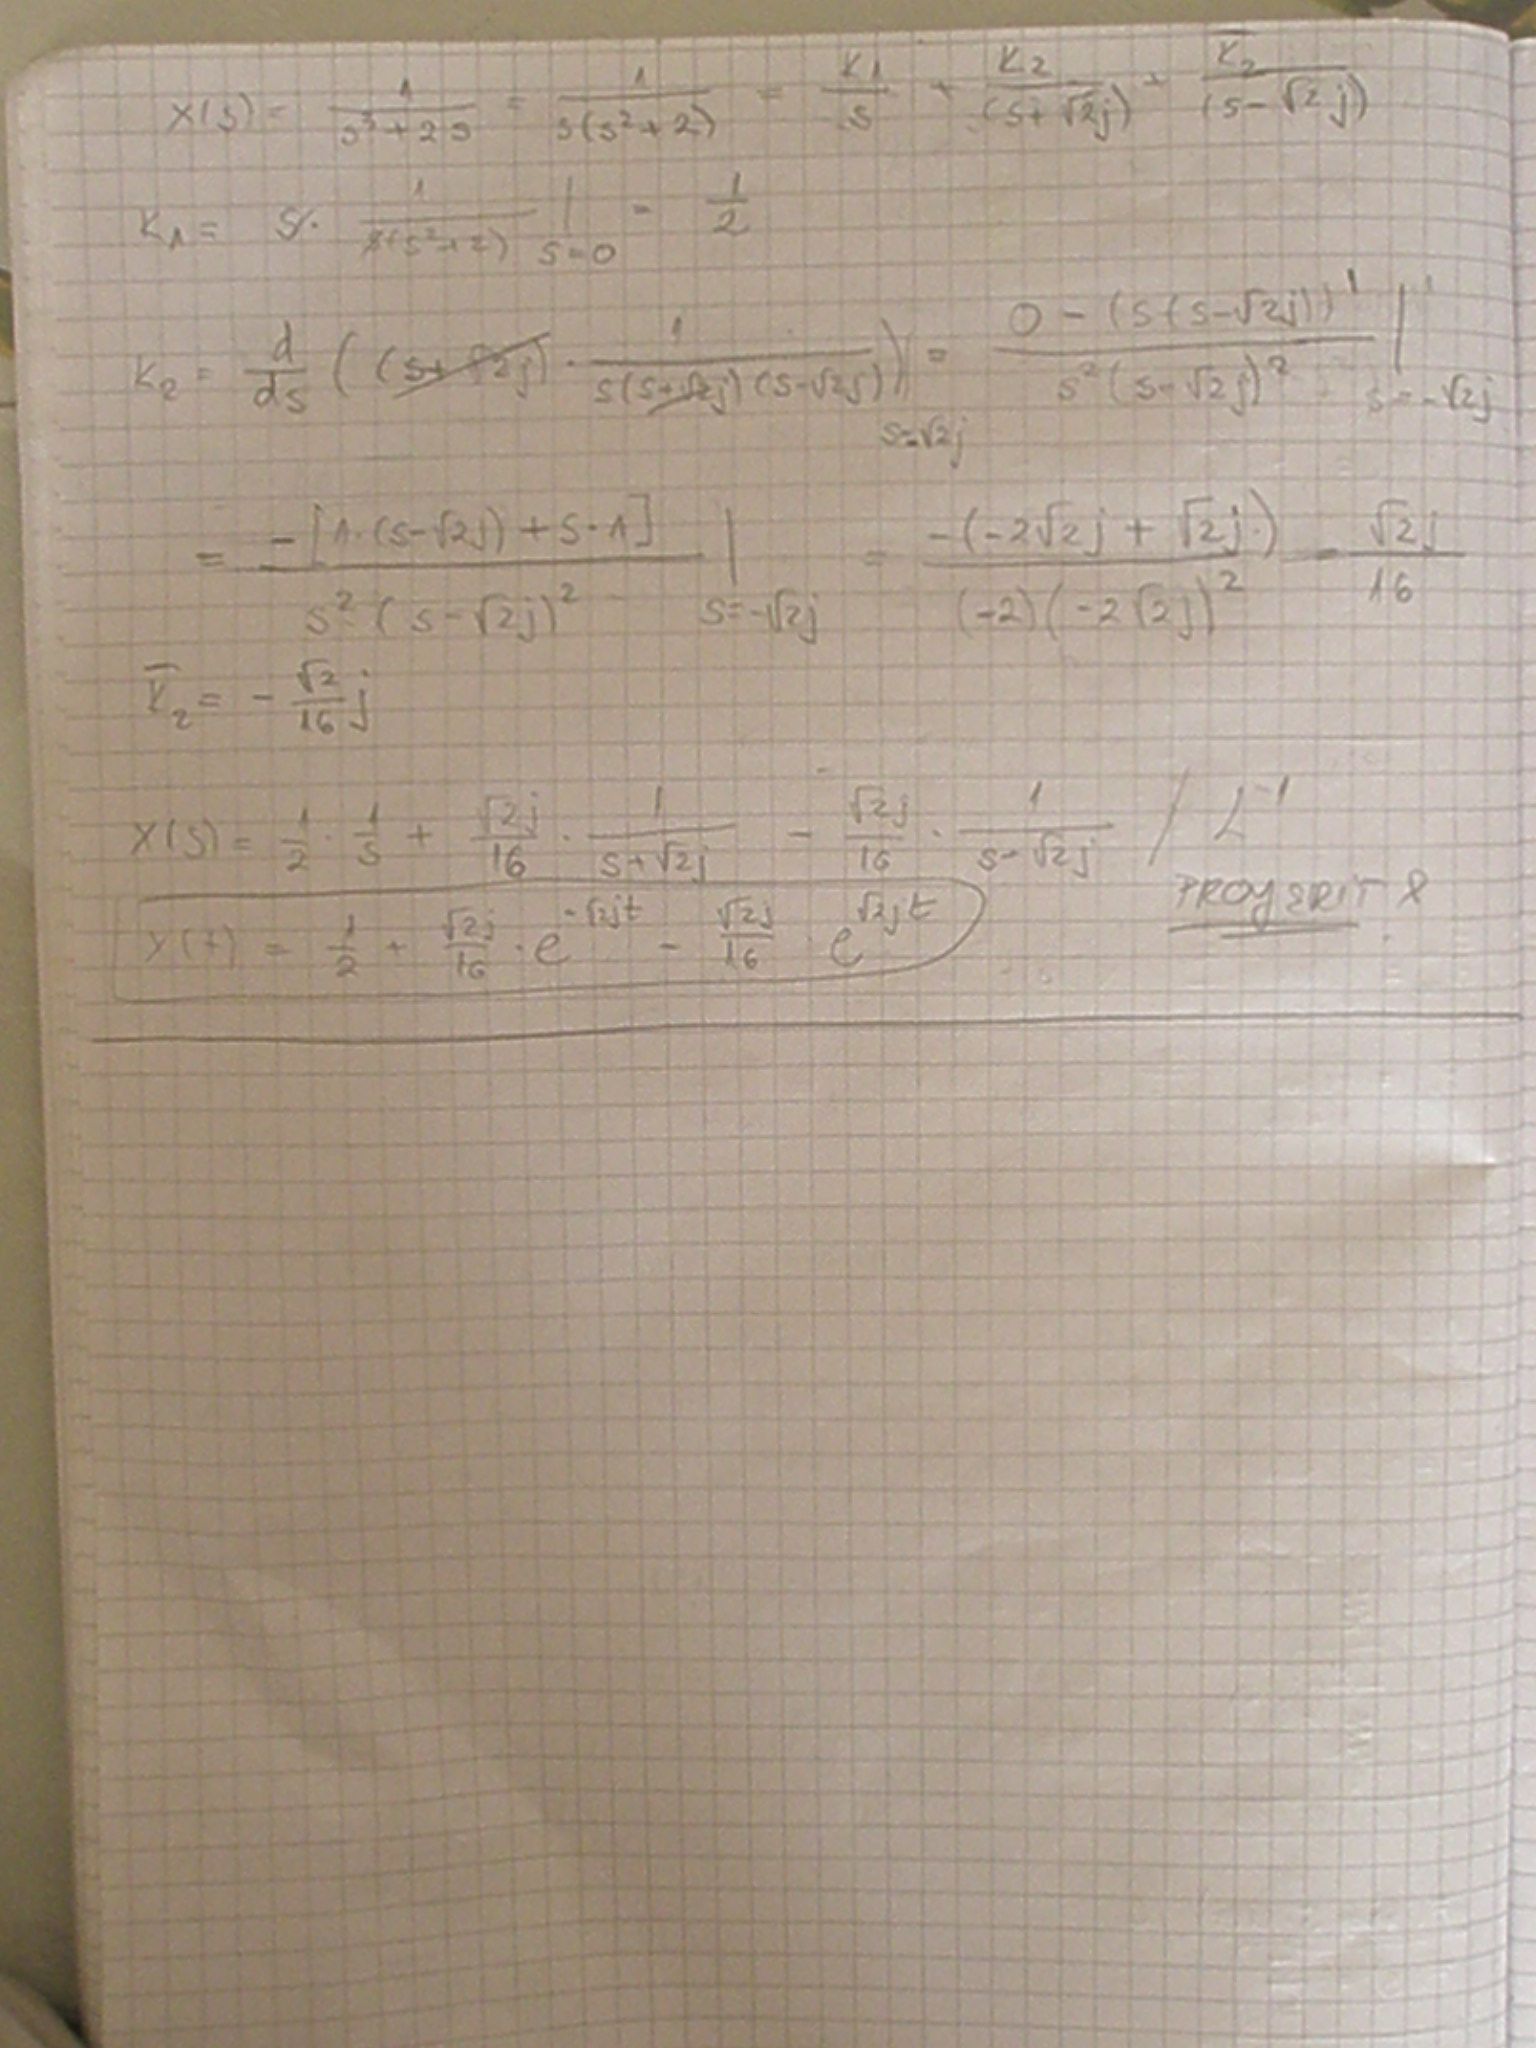 X(s) = 1/(s³+2s) = 1/(s(s²+2)) = K1/s + K2/(s+√2j) + K̅2/(s-√2j)
K1 = s · 1/(s(s²+2)) |s=0 = 1/2
K2 = d/ds ((s+√2j) · 1/(s(s+√2j)(s-√2j))) |s=√2j = (0-(s(s-√2j))')/(s²(s-√2j)²) |s=-√2j
= -[1·(s-√2j)+s·1]/(s²(s-√2j)²) |s=-√2j = -(-2√2j+√2j)/((-2)(-2√2j)²) = √2j/16
K̅2 = -√2/16 j
X(s) = 1/2 · 1/s + √2j/16 · 1/(s+√2j) - √2j/16 · 1/(s-√2j) / L⁻¹
PROVJERIT
Y(t) = 1/2 + √2j/16 · e^(-√2jt) - √2j/16 · e^(√2jt)